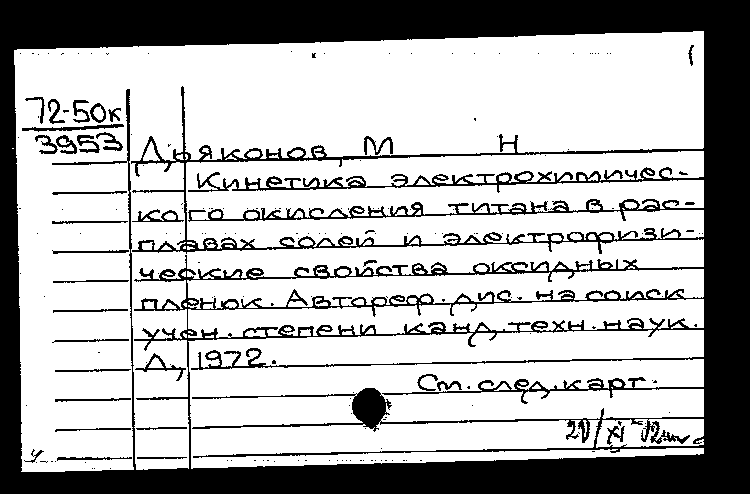 72-50к
3953
Дьяконов, М Н
Кинетика электрохимичес-
кого окисления титана в рас-
плавах солей и электрофизи-
ческие свойства оксидных
пленок. Автореф. дис. на соиск
учен. степени канд. техн. наук.
Л., 1972.
См. след. карт.